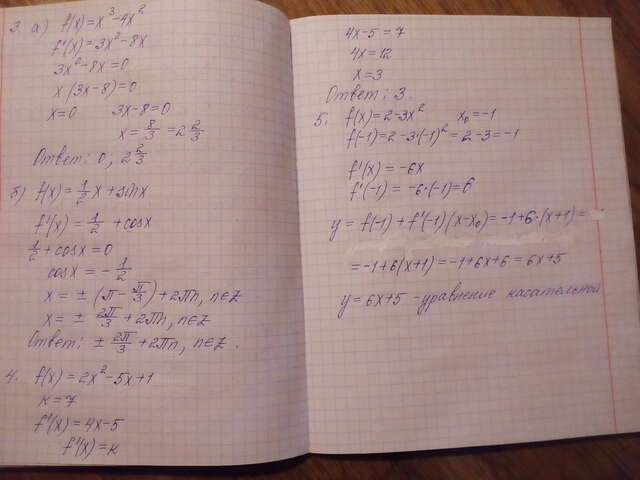 3. а) f(x)=x³-4x²
f'(x)=3x²-8x
3x²-8x=0
x(3x-8)=0
x=0 3x-8=0
x=8/3=2 2/3
Ответ: 0, 2 2/3
б) f(x)=1/2 x+sinx
f'(x)=1/2+cosx
1/2+cosx=0
cosx=-1/2
x=±(π-π/3)+2πn, n∈Z
x=±2π/3+2πn, n∈Z
Ответ: ±2π/3+2πn, n∈Z.
4. f(x)=2x²-5x+1
к=7
f'(x)=4x-5
f'(x)=к
4x-5=7
4x=12
x=3
Ответ: 3.
5. f(x)=2-3x² x₀=-1
f(-1)=2-3·(-1)²=2-3=-1
f'(x)=-6x
f'(-1)=-6·(-1)=6
y=f(-1)+f'(-1)(x-x₀)=-1+6·(x+1)=
=-1+6(x+1)=-1+6x+6=6x+5
y=6x+5 -уравнение касательной